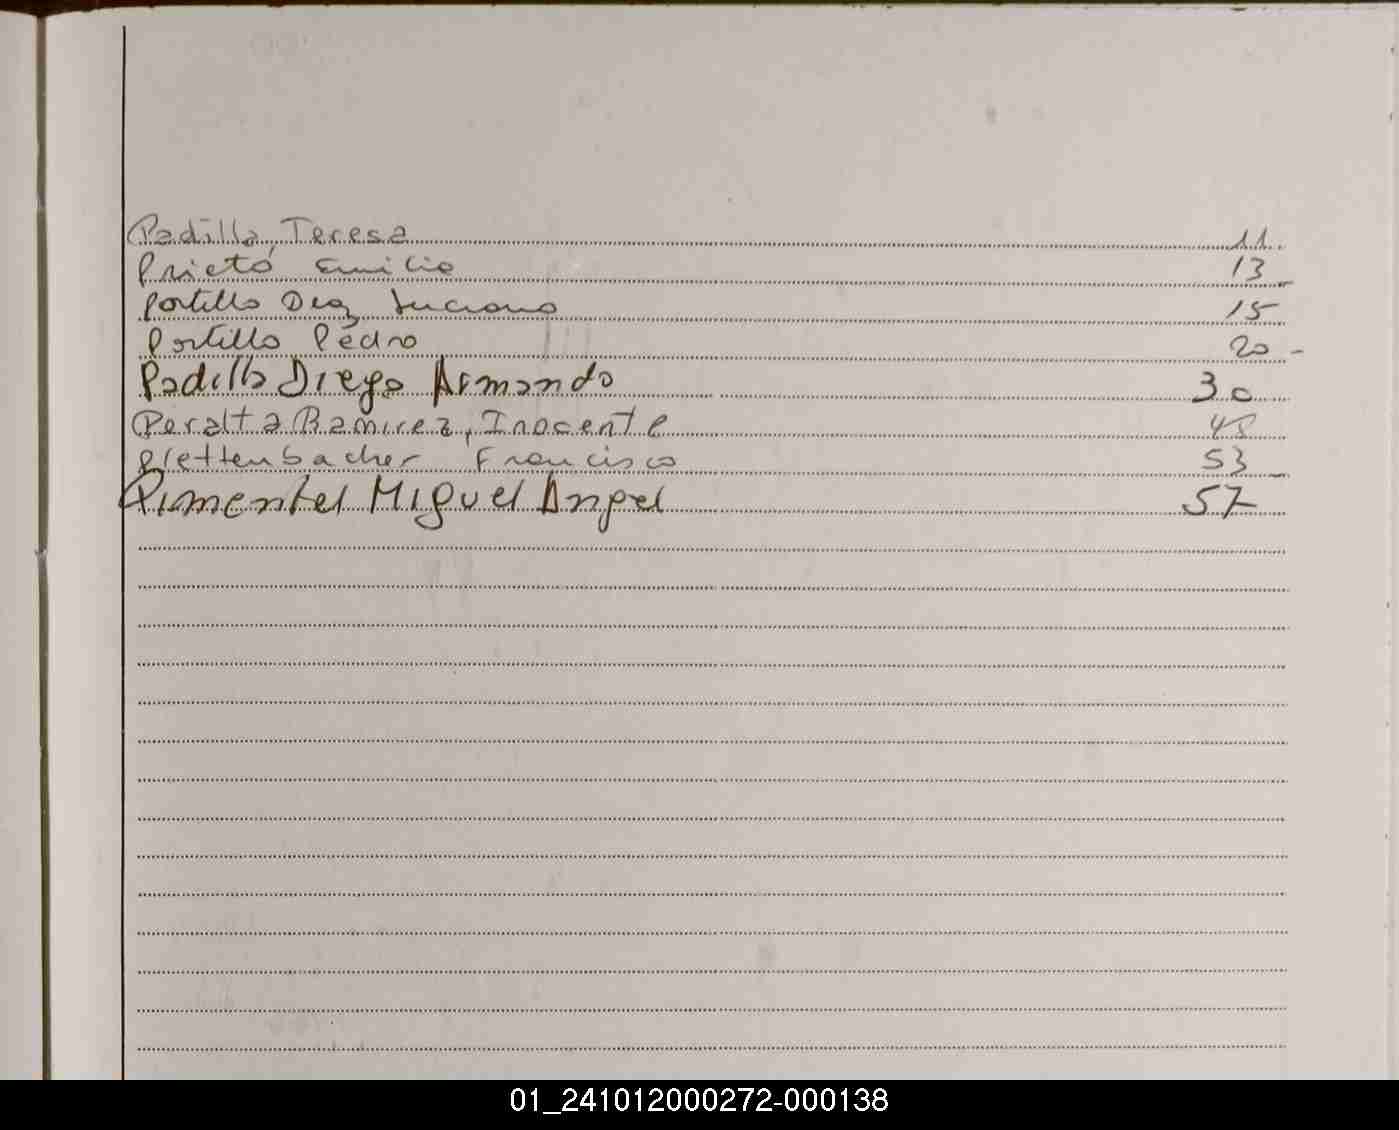 Padilla, Teresa 11.
Prieto Emilio 13
Portillo Diaz Luciano 15
Portillo Pedro 20 -
Padilla Diego Armando 30
Peralta Ramirez, Inocente 48
Plettenbacher Francisco 53
Pimentel Miguel Angel 57
01_241012000272-000138